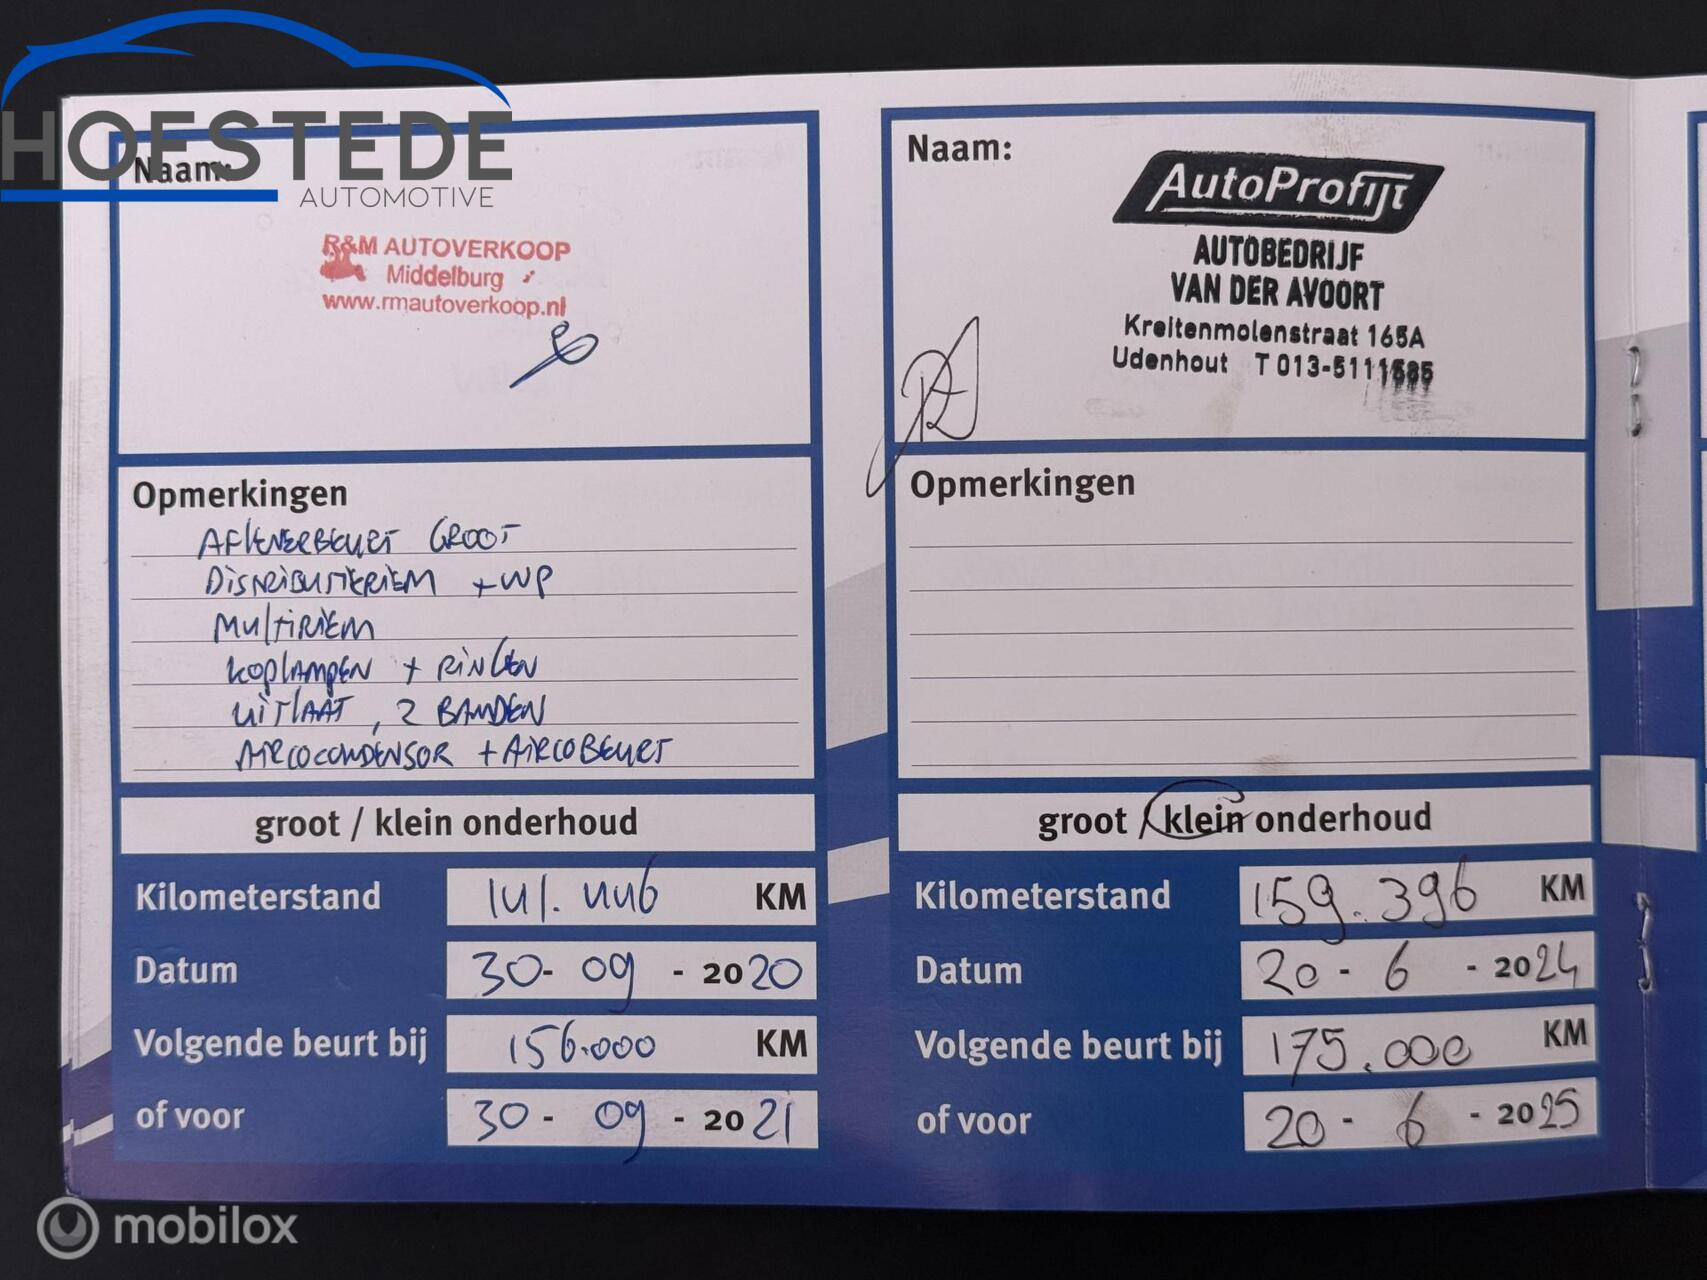 HOFSTEDE
AUTOMOTIVE
Naam:
R&M AUTOVERKOOP
Middelburg
www.rmautoverkoop.nl
Opmerkingen
AFLEVERBEURT GROOT
DISTRIBUTIERIEM + WP
MULTIRIEM
KOPLAMPEN + RINGEN
UITLAAT, 2 BANDEN
AIRCOCONDENSOR + AIRCOBEURT
groot / klein onderhoud
Kilometerstand 141.446 KM
Datum 30-09-2020
Volgende beurt bij 156.000 KM
of voor 30-09-2021
Naam:
AutoProfijt
AUTOBEDRIJF
VAN DER AVOORT
Kreitenmolenstraat 165A
Udenhout T 013-5111585
Opmerkingen
groot / klein onderhoud
Kilometerstand 159.396 KM
Datum 20-6-2024
Volgende beurt bij 175.000 KM
of voor 20-6-2025
mobilox